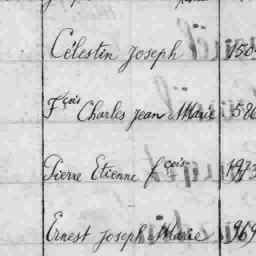 Célestin Joseph
Fçois Charles Jean Marie
Pierre Etienne fçois
Ernest Joseph Marie 969